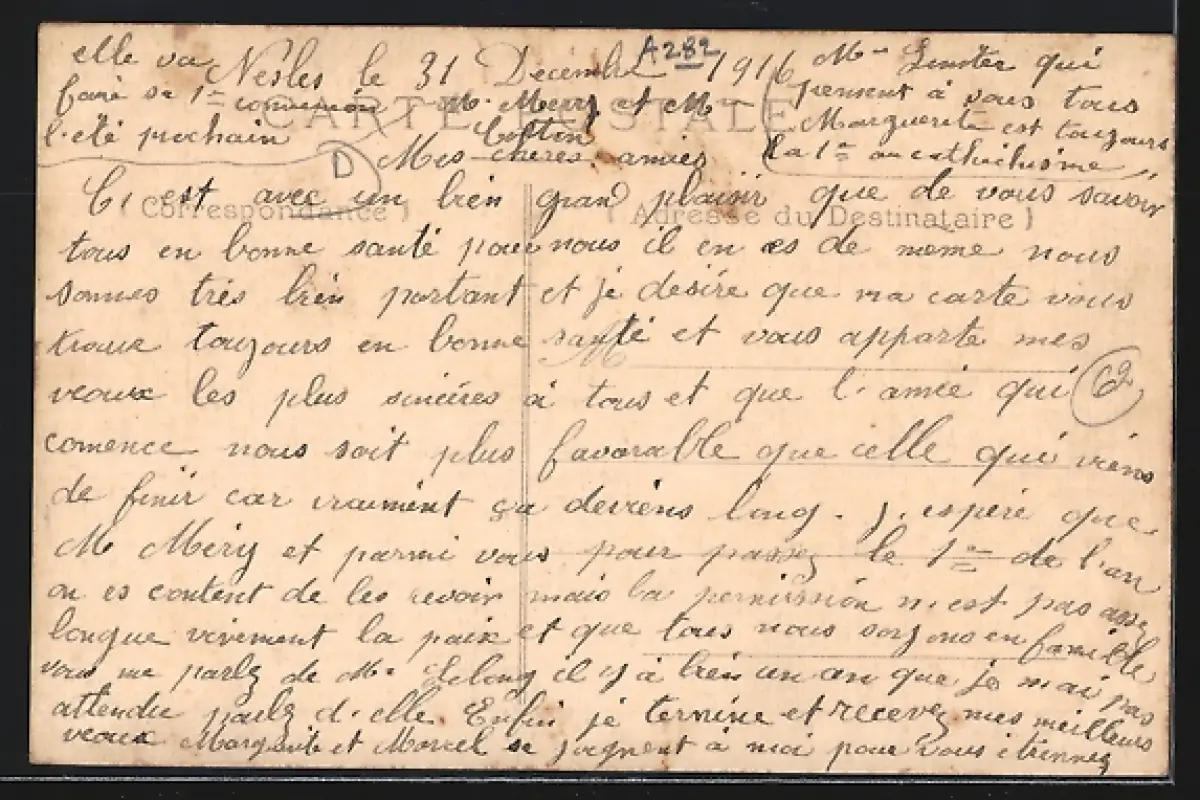 Nesles le 31 Décembre 1916
A282
CARTE POSTALE
Mr Merry et Mme
Cotton
Mes chères amies
( Correspondance )
( Adresse du Destinataire )
C, est avec un bien grand plaisir que de vous savoir
tous en bonne santé pour nous il en es de même nous
sommes très bien portant et je désire que ma carte vous
trouve toujours en bonne santé et vous apporte mes
veaux les plus sincères à tous et que l'année qui
comence nous soit plus favorable que celle qui viens
de finir car vraiment ça deviens long. j, espère que
M Méry et parmi vous pour passez le 1er de l'an
on es content de les revoir mais la permission n'est pas assez
longue vivement la paix et que tous nous soyons en famille
vous me parlez de Me Lelong il y à bien un an que je n'ai pas
attendu parlez d'elle. Enfin je termine et recevez mes meilleurs
veaux Marguerite et Marcel se joignent à moi pour vous
Mme qui
pensent à vous tous
Marguerite est toujours
la 1re au cathéchisme
elle va
faire sa 1re communion
l'été prochain
D